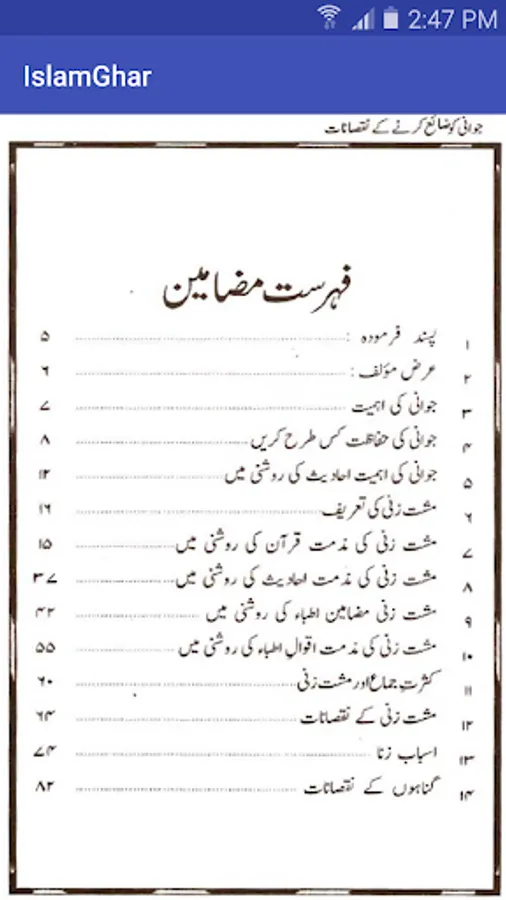 2:47 PM
IslamGhar
جوانی کو ضائع کرنے کے نقصانات
فہرست مضامین
۱ پسند فرمودہ : ۵
۲ عرض مؤلف : ۶
۳ جوانی کی اہمیت ۷
۴ جوانی کی حفاظت کس طرح کریں ۸
۵ جوانی کی اہمیت احادیث کی روشنی میں ۱۲
۶ مشت زنی کی تعریف ۱۶
۷ مشت زنی کی مذمت قرآن کی روشنی میں ۱۵
۸ مشت زنی کی مذمت احادیث کی روشنی میں ۳۷
۹ مشت زنی مضامین اطباء کی روشنی میں ۴۲
۱۰ مشت زنی کی مذمت اقوالِ اطباء کی روشنی میں ۵۵
۱۱ کثرتِ جماع اور مشت زنی ۶۰
۱۲ مشت زنی کے نقصانات ۶۴
۱۳ اسباب زنا ۷۴
۱۴ گناہوں کے نقصانات ۸۲